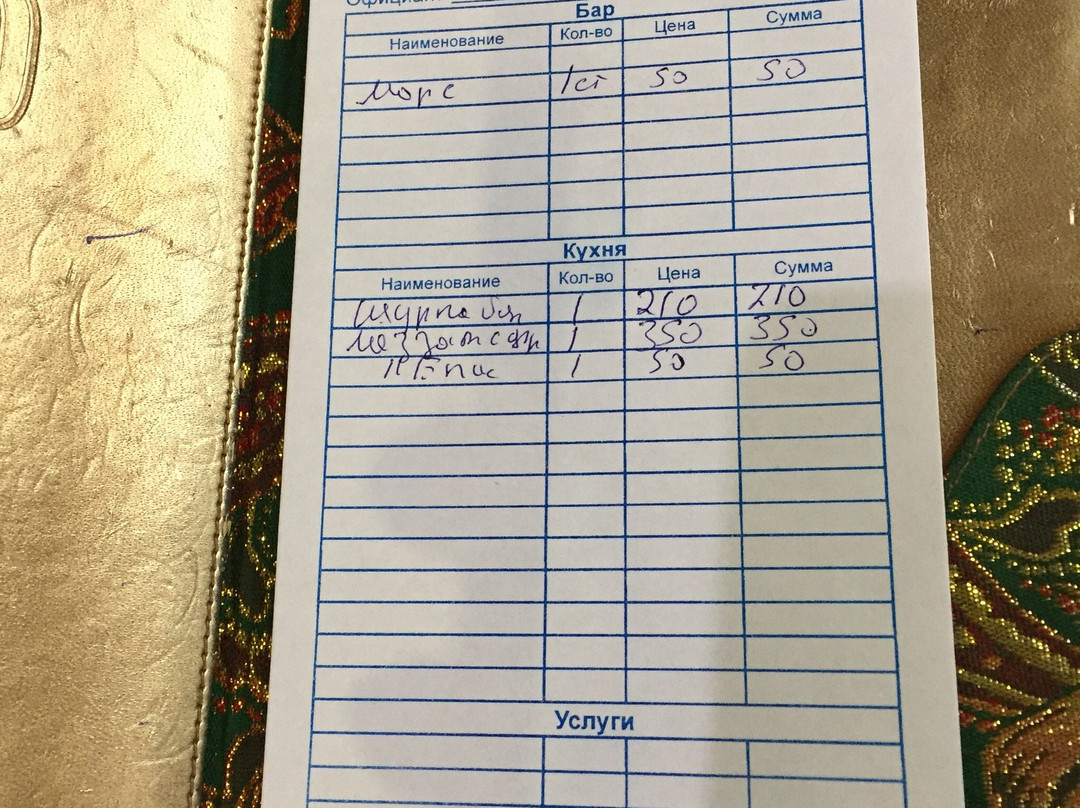 Официант
Бар
Наименование Кол-во Цена Сумма
Морс 1ст 50 50
Кухня
Наименование Кол-во Цена Сумма
Шурпа 1 210 210
1 350 350
1 50 50
Услуги